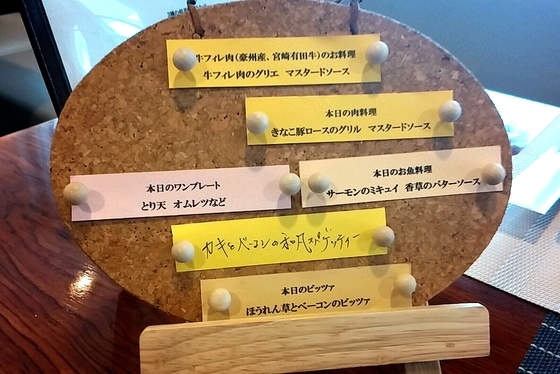 牛フィレ肉(豪州産、宮崎有田牛)のお料理
牛フィレ肉のグリエ マスタードソース
本日の肉料理
きなこ豚ロースのグリル マスタードソース
本日のお魚料理
サーモンのミキュイ 香草のバターソース
本日のワンプレート
とり天 オムレツなど
カキとベーコンの和風スパゲッティー
本日のピッツァ
ほうれん草とベーコンのピッツァ